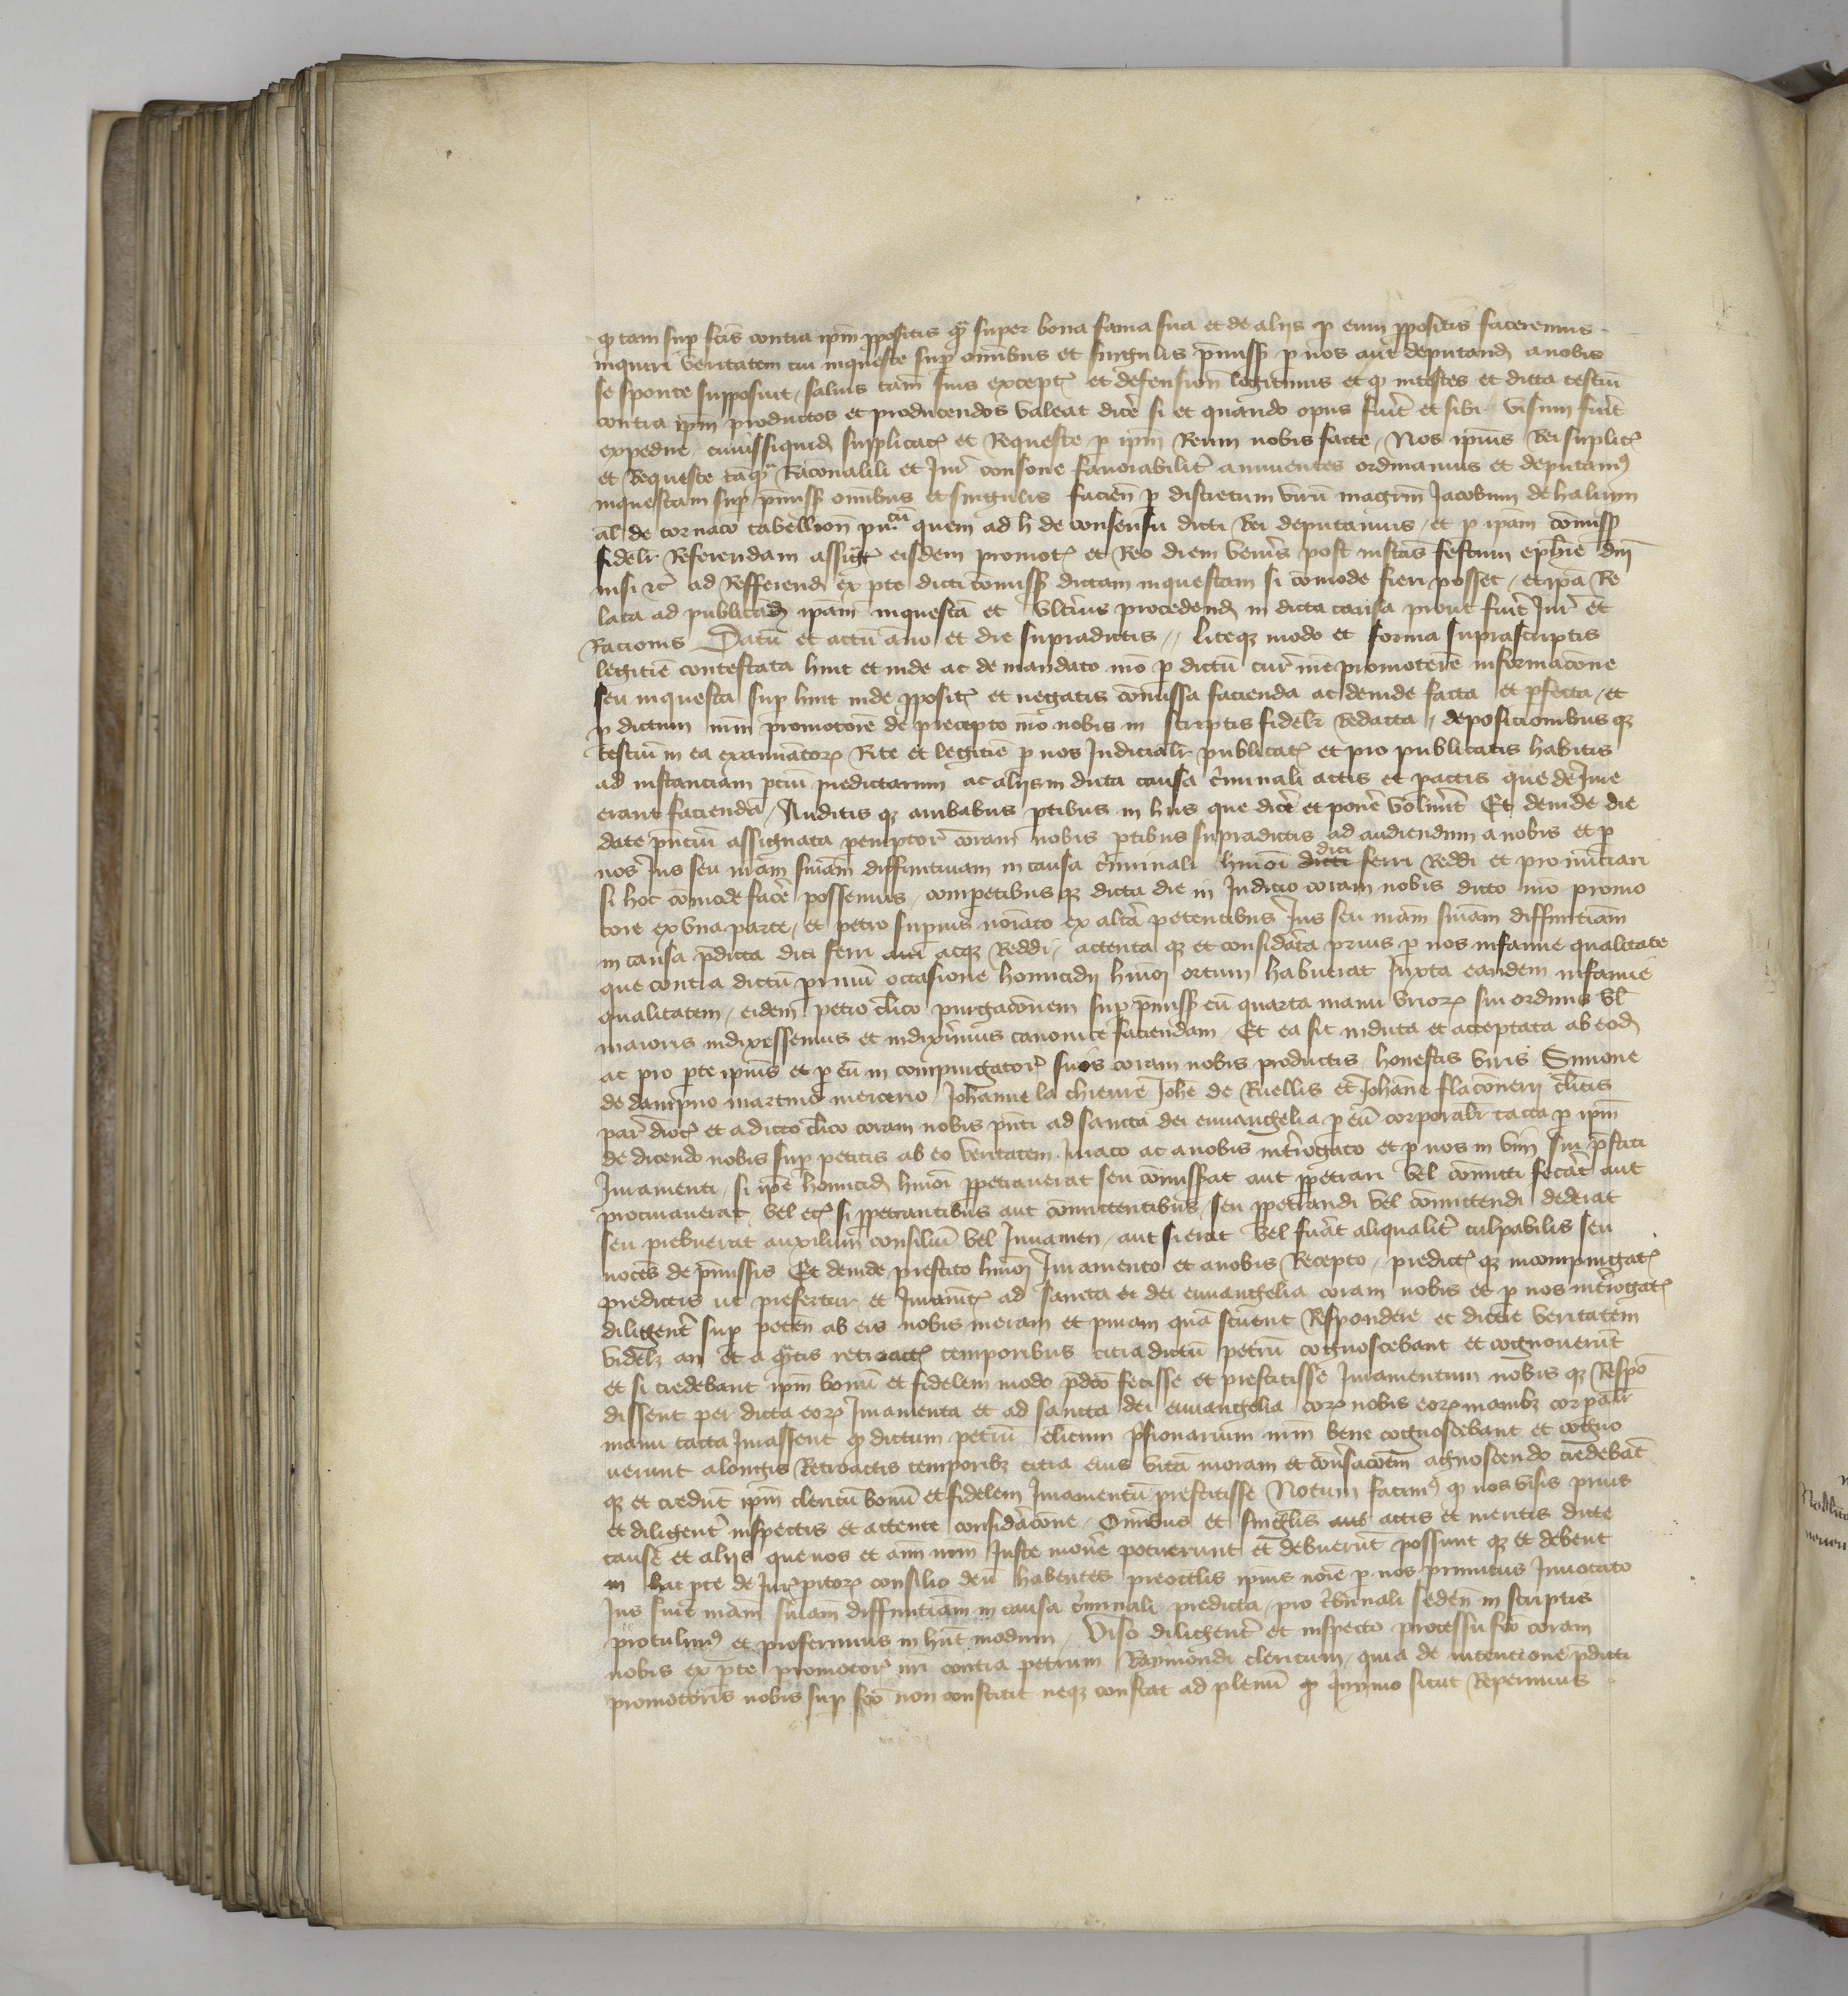 q tam sup fcis contra ipm ppositis qa super bona fama sua et de alijs p eum ppositis faceremus
inquiri veritatem cui inqueste sup omibus et singulis pmiss p nos aut deputand a nobis
se sponte supposuit / saluis tam suis except et defension legitimis et q in testes et dicta testiu
contra ipm productos et producendos valeat dice si et quando opus fuit et sibi visum fuit
expedire cuiussiquid supplicat et Requeste p ipm Reum nobis facte / Nos ipius Rei suplic
et Requeste taq Racionabili et Juri consone fauorabilit annuentes ordinamus et deputam
inquestam sup pmiss omibus et singulis facien p discretum viru magrm Jacobum de haluyn
al de tornaco tabellion pu cu quem ad h de consensu dicti Rei deputamus / et p ipam comiss
fidelr Referendam assigt eisdem promot et Reo diem veneris post instas festum ephie dni
nisi etc ad Refferend ex pte dicti comiss dictam inquestam si comode fieri posset / et ipa Re
lata ad publicand ipam inquesta et vlterius procedend in dicta causa prout fuit Jur et
Racionis Datu et actu ano et die supradictis // liteq modo et forma suprascriptis
legitie contestata hinc et inde ac de mandato nro p dictu cur nre promotore informacone
seu inquesta sup hinc inde pposit et negatis comissa facienda ac deinde facta et pfecta / et
p dictum nrm promotore de precepto nro nobis in scriptis fidelr Redacta / deposicionibus q
testiu in ea examinator Rite et legitie p nos Judicialr publicat et pro publicatis habitis
ad instanciam pciu predictarum ac alijs in dicta causa criminali actis et pactis que de Jure
erant facienda / Auditis q ambabus ptibus in hiis que dice et pone volunt Et deinde die
date pnciu assignata pemptor coram nobis ptibus supradictis ad audiendum a nobis et p
nos Jus seu nram sniam diffinitiuam in causa criminali hmoi dicti dici ferri Reddi et pronunciari
si hoc comode face possemus / competibus q dicta die in Judicio coram nobis dicto nro promo
tore ex vna parte / et petro supius noiato ex altera petentibus Jus seu nram sniam diffinitiam
in causa pdicta dici ferri atq Reddi / attenta q et considata prius p nos infamie qualitate
que contra dictu primu occasione homicidij hmoi ortum habuerat Juxta eandem infamie
qualitatem / eidem petro clico purgaconem sup pmiss cu quarta manu viror sui ordinis vl
maioris indixissemus et indiximus canonice faciendam / Et ea sic inducta et acceptata ab eod
ac pro parte ipius et p eu in compurgator suos coram nobis productis honestis viris Simone
de dampno martino mercerio Johanne la chieure Johe de Ruellis et Johane flaconerij clicis
par dioc et a dicto clico coram nobis pnti ad sancta dei euuangelia p eu corporalr tacta p ipm
de dicendo nobis sup petitis ab eo veritatem Jurato ac a nobis introgato et p nos in vim sui pstiti
Juramenti / si ipe homicid hmoi ppetrauerat seu comisserat aut ppetrari vel comitti fecat aut
procurauerat vel ec si ppetrantibus aut comittentibus seu ppetrandi vel comittendi dederat
seu prebuerat auxilium consiliu vel Juuamen / aut si erat vel fuat aliqualit culpabilis seu
noces de pmissis Et deinde prestito hmoi Juramento et a nobis Recepto / predict q in compurgat
predictis ut prefertur et Juramt ad sancta et dei euuangelia coram nobis et p nos introgat
diligent sup peten ab eis nobis meram et puram qua scirent Respondere et dicere veritatem
videlz an et a qtis retroact temporibus citra dictu petru cognoscebant et cognouerut
et si credebant ipm bonu et fidelem modo pdco fecisse et prestitisse Juramentum nobis q Respo
dissent per dicta eor Juramenta et ad sancta dei euuangelia cora nobis eor manibz corpalr
manu tacta Jurassent q dictum petru clicum prisionarium nrm bene cognoscebant et cogno
uerunt a longis Retroactis temporibz citra eius vita moram et conusacoem agnoscendo credebat
q et credut ipm clericu bonu et fidelem Juramentu prestitisse Notum facim q nos visis prius
et diligent inspectis et attente consideracone / Omibus et singlis actis et meritis dicte
cause et alijs que nos et aim nrm Juste moue potuerunt et debuerut possunt q et debent
in hac pte de Jur pitor consilio deu habentes preoclis ipius noie p nos primitus Inuocato
Jus siue nram sniam diffinitiam in causa criminali predicta / pro tribunali seden in scriptis
protulim et proferimus in hut modum / Viso diligent et inspecto processu fco coram
nobis ex pte promotor nri contra petrum Raymondi clericum / quia de intencione pdicti
promotoris nobis sup fco non constitit neq constat ad plenu q ymmo sicut Reperimus